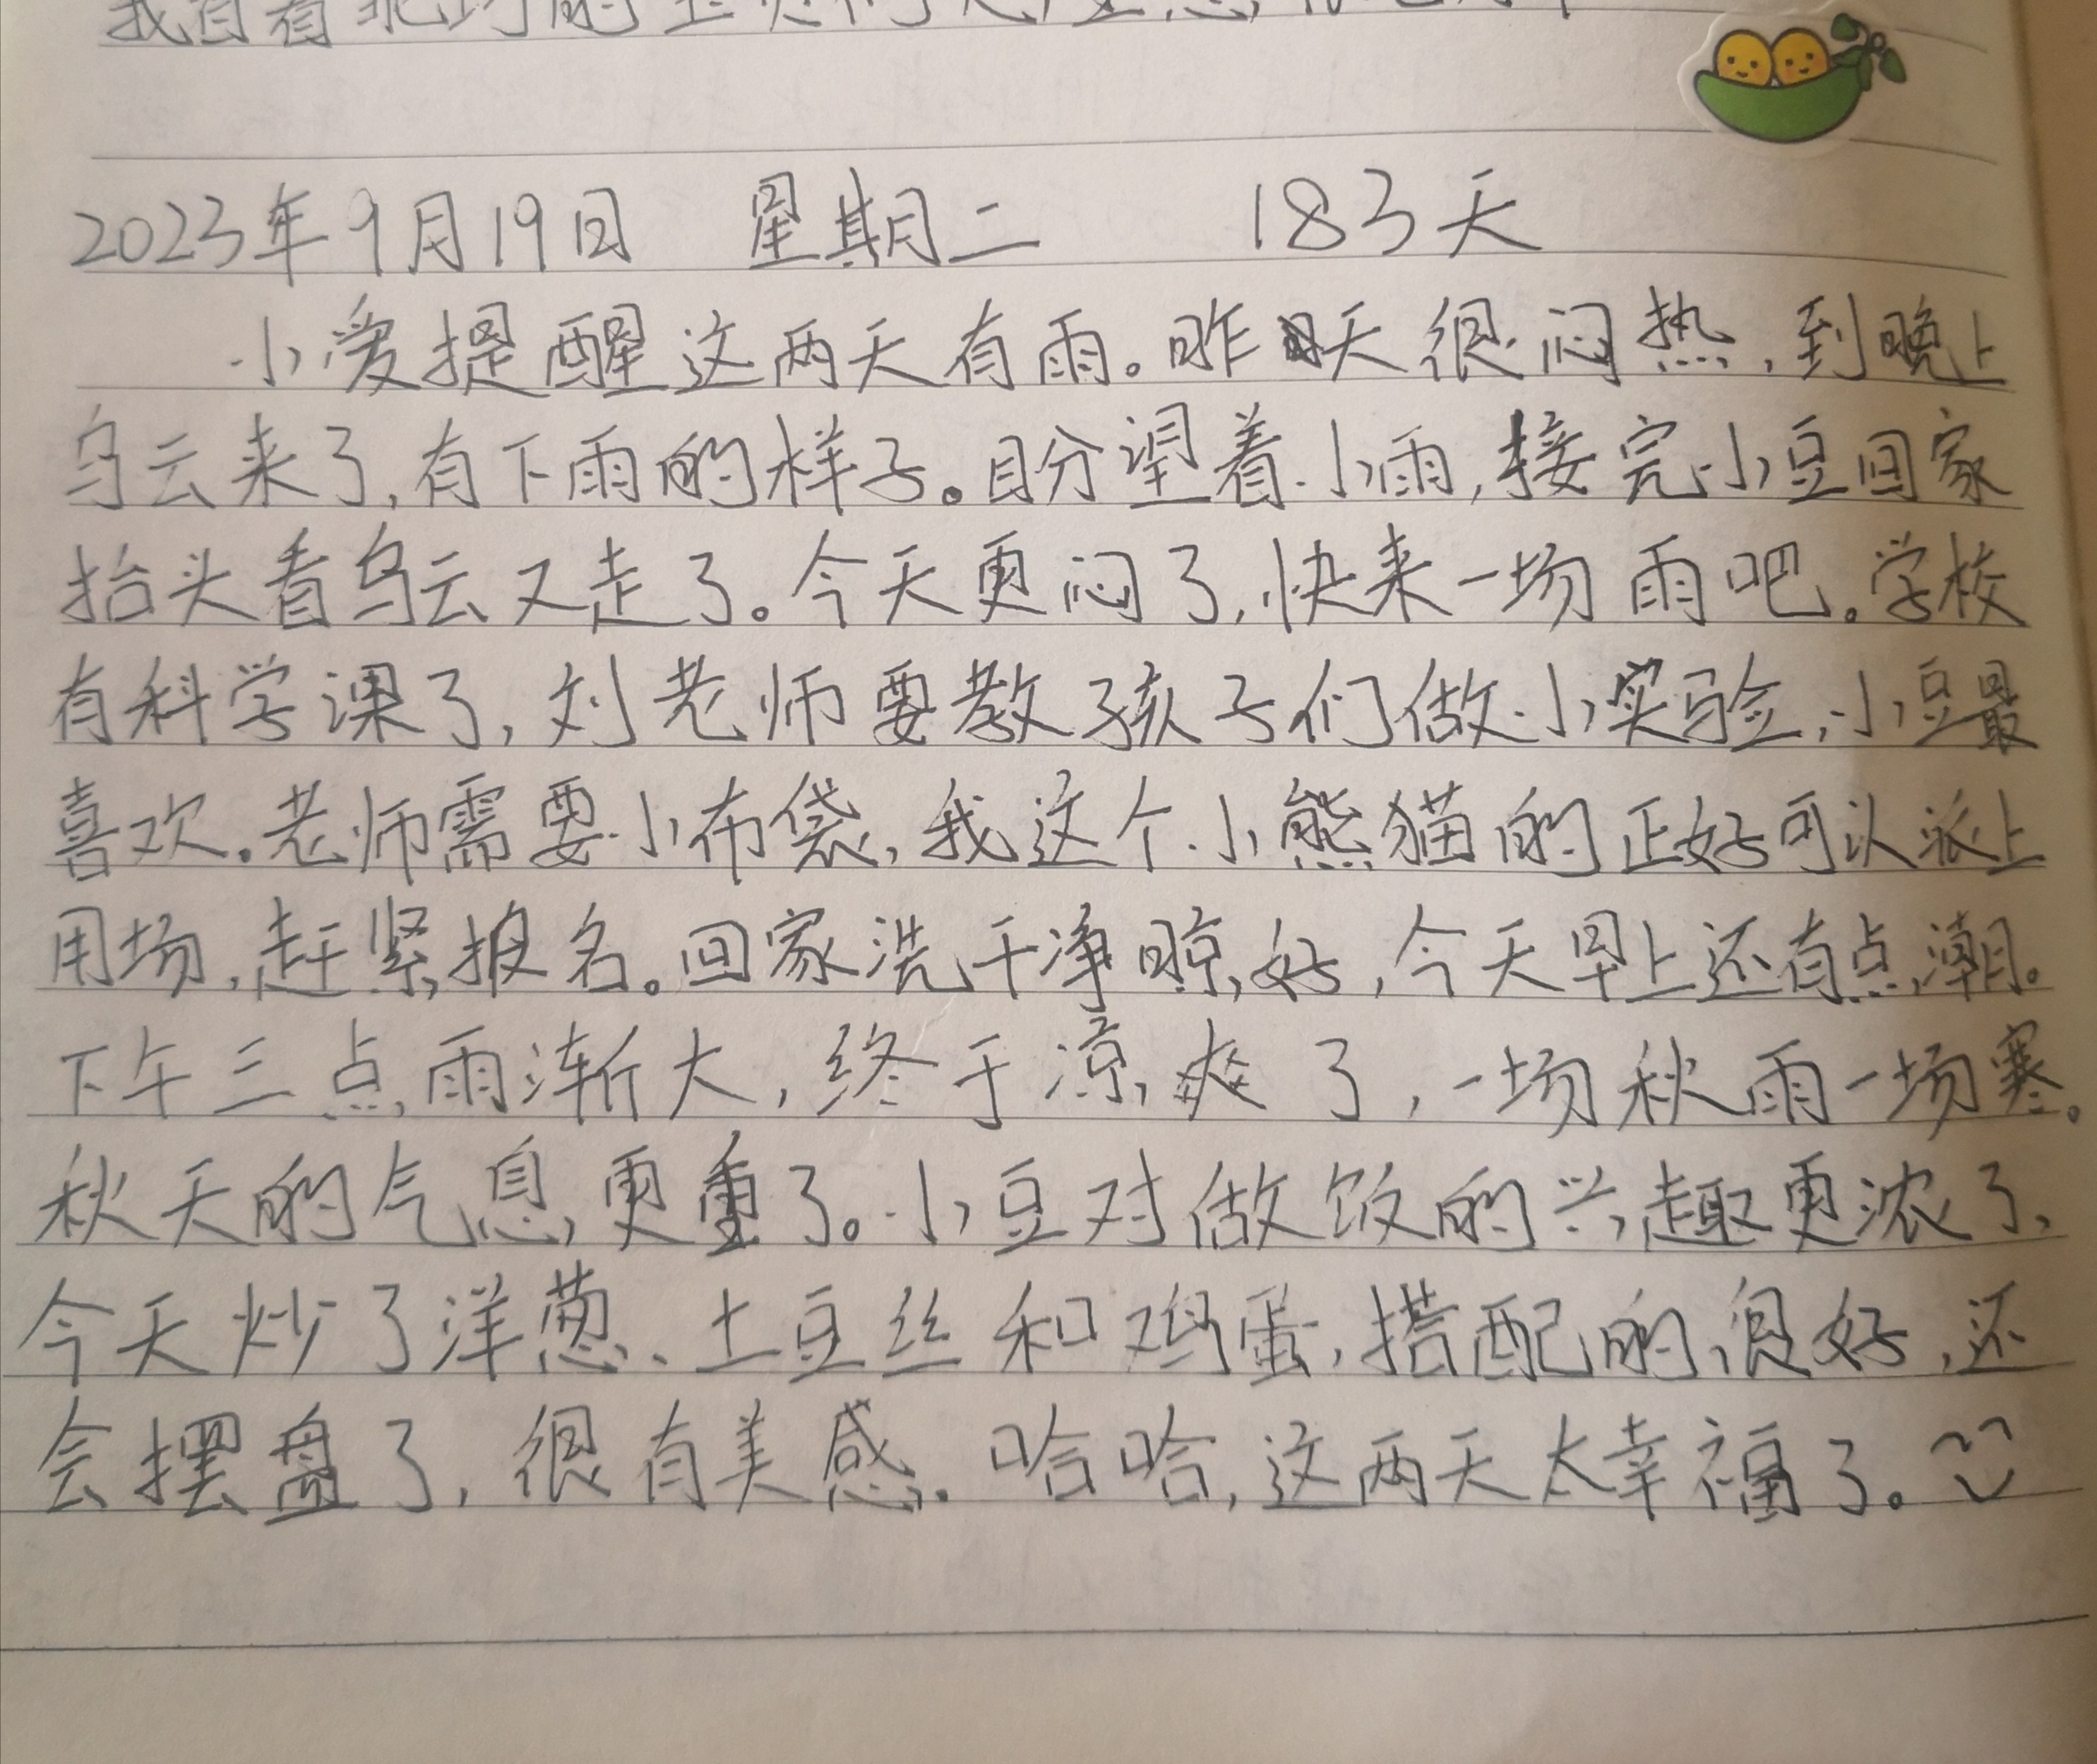 我自着
的
2023年9月19日 星期二 183天
小爱提醒这两天有雨。昨天很闷热，到晚上
乌云来了，有下雨的样子。盼望着小雨，接完小豆回家
抬头看乌云又走了。今天更闷了，快来一场雨吧。学校
有科学课了，刘老师要教孩子们做小实验，小豆最
喜欢。老师需要小布袋，我这个小熊猫的正好可以派上
用场，赶紧报名。回家洗干净晾好，今天早上还有点潮。
下午三点雨渐大，终于凉爽了，一场秋雨一场寒。
秋天的气息更重了。小豆对做饭的兴趣更浓了，
今天炒了洋葱、土豆丝和鸡蛋，搭配的很好，还
会摆盘了，很有美感。哈哈，这两天太幸福了。